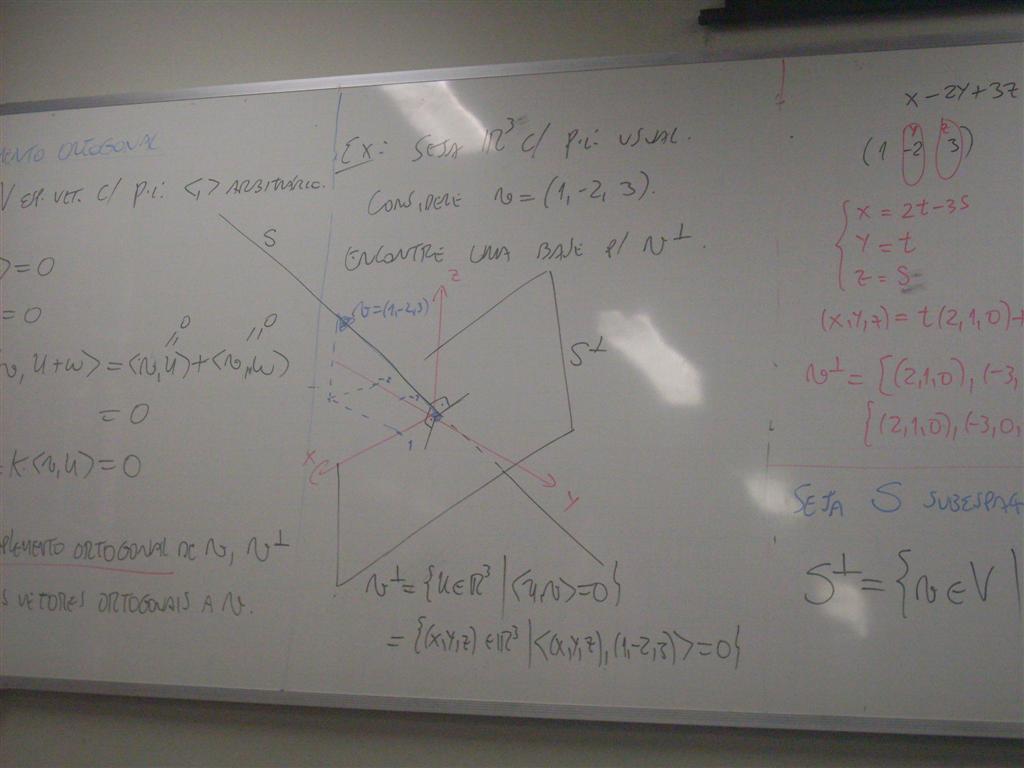 MENTO ORTOGONAL
V ESP. VET. C/ P.I. <,> ARBITRÁRIO.
>=0
=0
0 0
<v, u+w> = <v,u> + <v,w>
= 0
K·<v,u> = 0
PLEMENTO ORTOGONAL DE v, v⊥
S VETORES ORTOGONAIS A v.
EX: SEJA ℝ³ C/ P.I. USUAL.
CONSIDERE v = (1,-2,3).
ENCONTRE UMA BASE P/ v⊥.
S
v=(1,-2,3)
Z
S⊥
1
X
Y
v⊥ = {u∈ℝ³ | <u,v>=0}
= {(x,y,z)∈ℝ³ | <(x,y,z),(1,-2,3)>=0}
x-2y+3z
y z
(1 -2 3)
{ x = 2t-3s
y = t
z = s
(x,y,z) = t(2,1,0)+
v⊥ = [(2,1,0), (-3,
{(2,1,0), (-3,0,
SEJA S SUBESPAÇ
S⊥ = {v∈V |